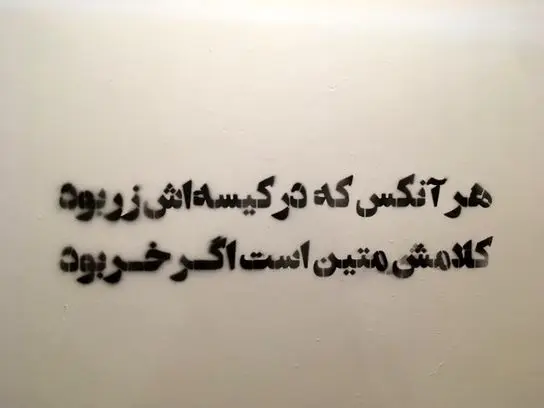 هر آنکس که در کیسه‌اش زر بود
کلامش متین است اگر خر بود